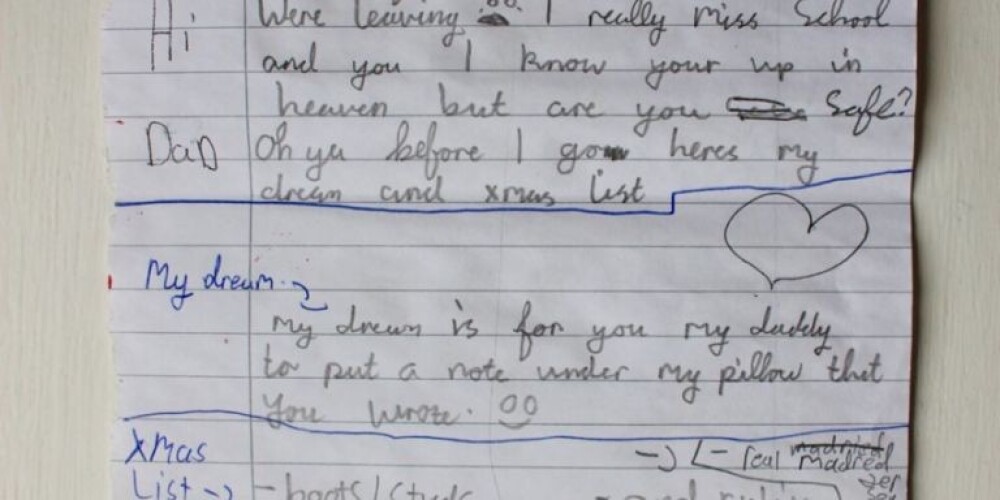 Hi Were leaving I really miss School
and you I know your up in
heaven but are you Safe?
DaD Oh ya before I go heres my
dream and xmas list
My dream
My dream is for you my daddy
to put a note under my pillow that
you wrote.
xmas - real madried Madred
List - boots/studs